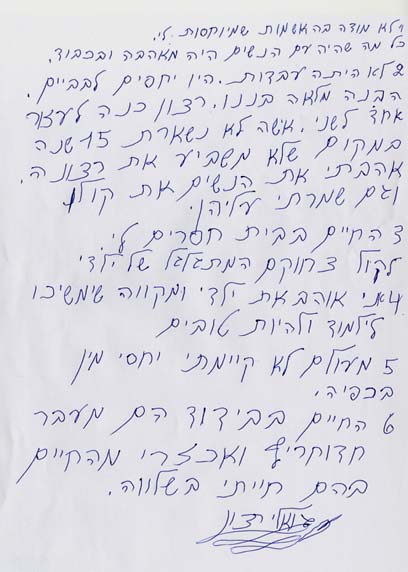 1 לא מודה בהאשמות שמיוחסות לי.
כל מה שהיה עם הנשים היה מאהבה ובכבוד.
2 לא היתה עבדות. היו יחסים לבביים.
הבנה מלאה בננו. רצון כנה לעזור
אחד לשני. אישה לא נשארת 15 שנה
במקום שלא משביע את רצונה.
אהבתי את הנשים את כולן
וגם שמרתי עליהן.
3 החיים בבית חסרים לי.
לקול צחוקם המתגלגל של ילדי
4 אני אוהב את ילדי ומקווה שימשיכו
לילמוד ולהיות טובים
5 מעולם לא קיימתי יחסי מין
בכפיה.
6 החיים בבידוד הם מעבר
חד וחריף ואכזרי מהחיים
בהם חייתי בשלווה.
גואל רצון